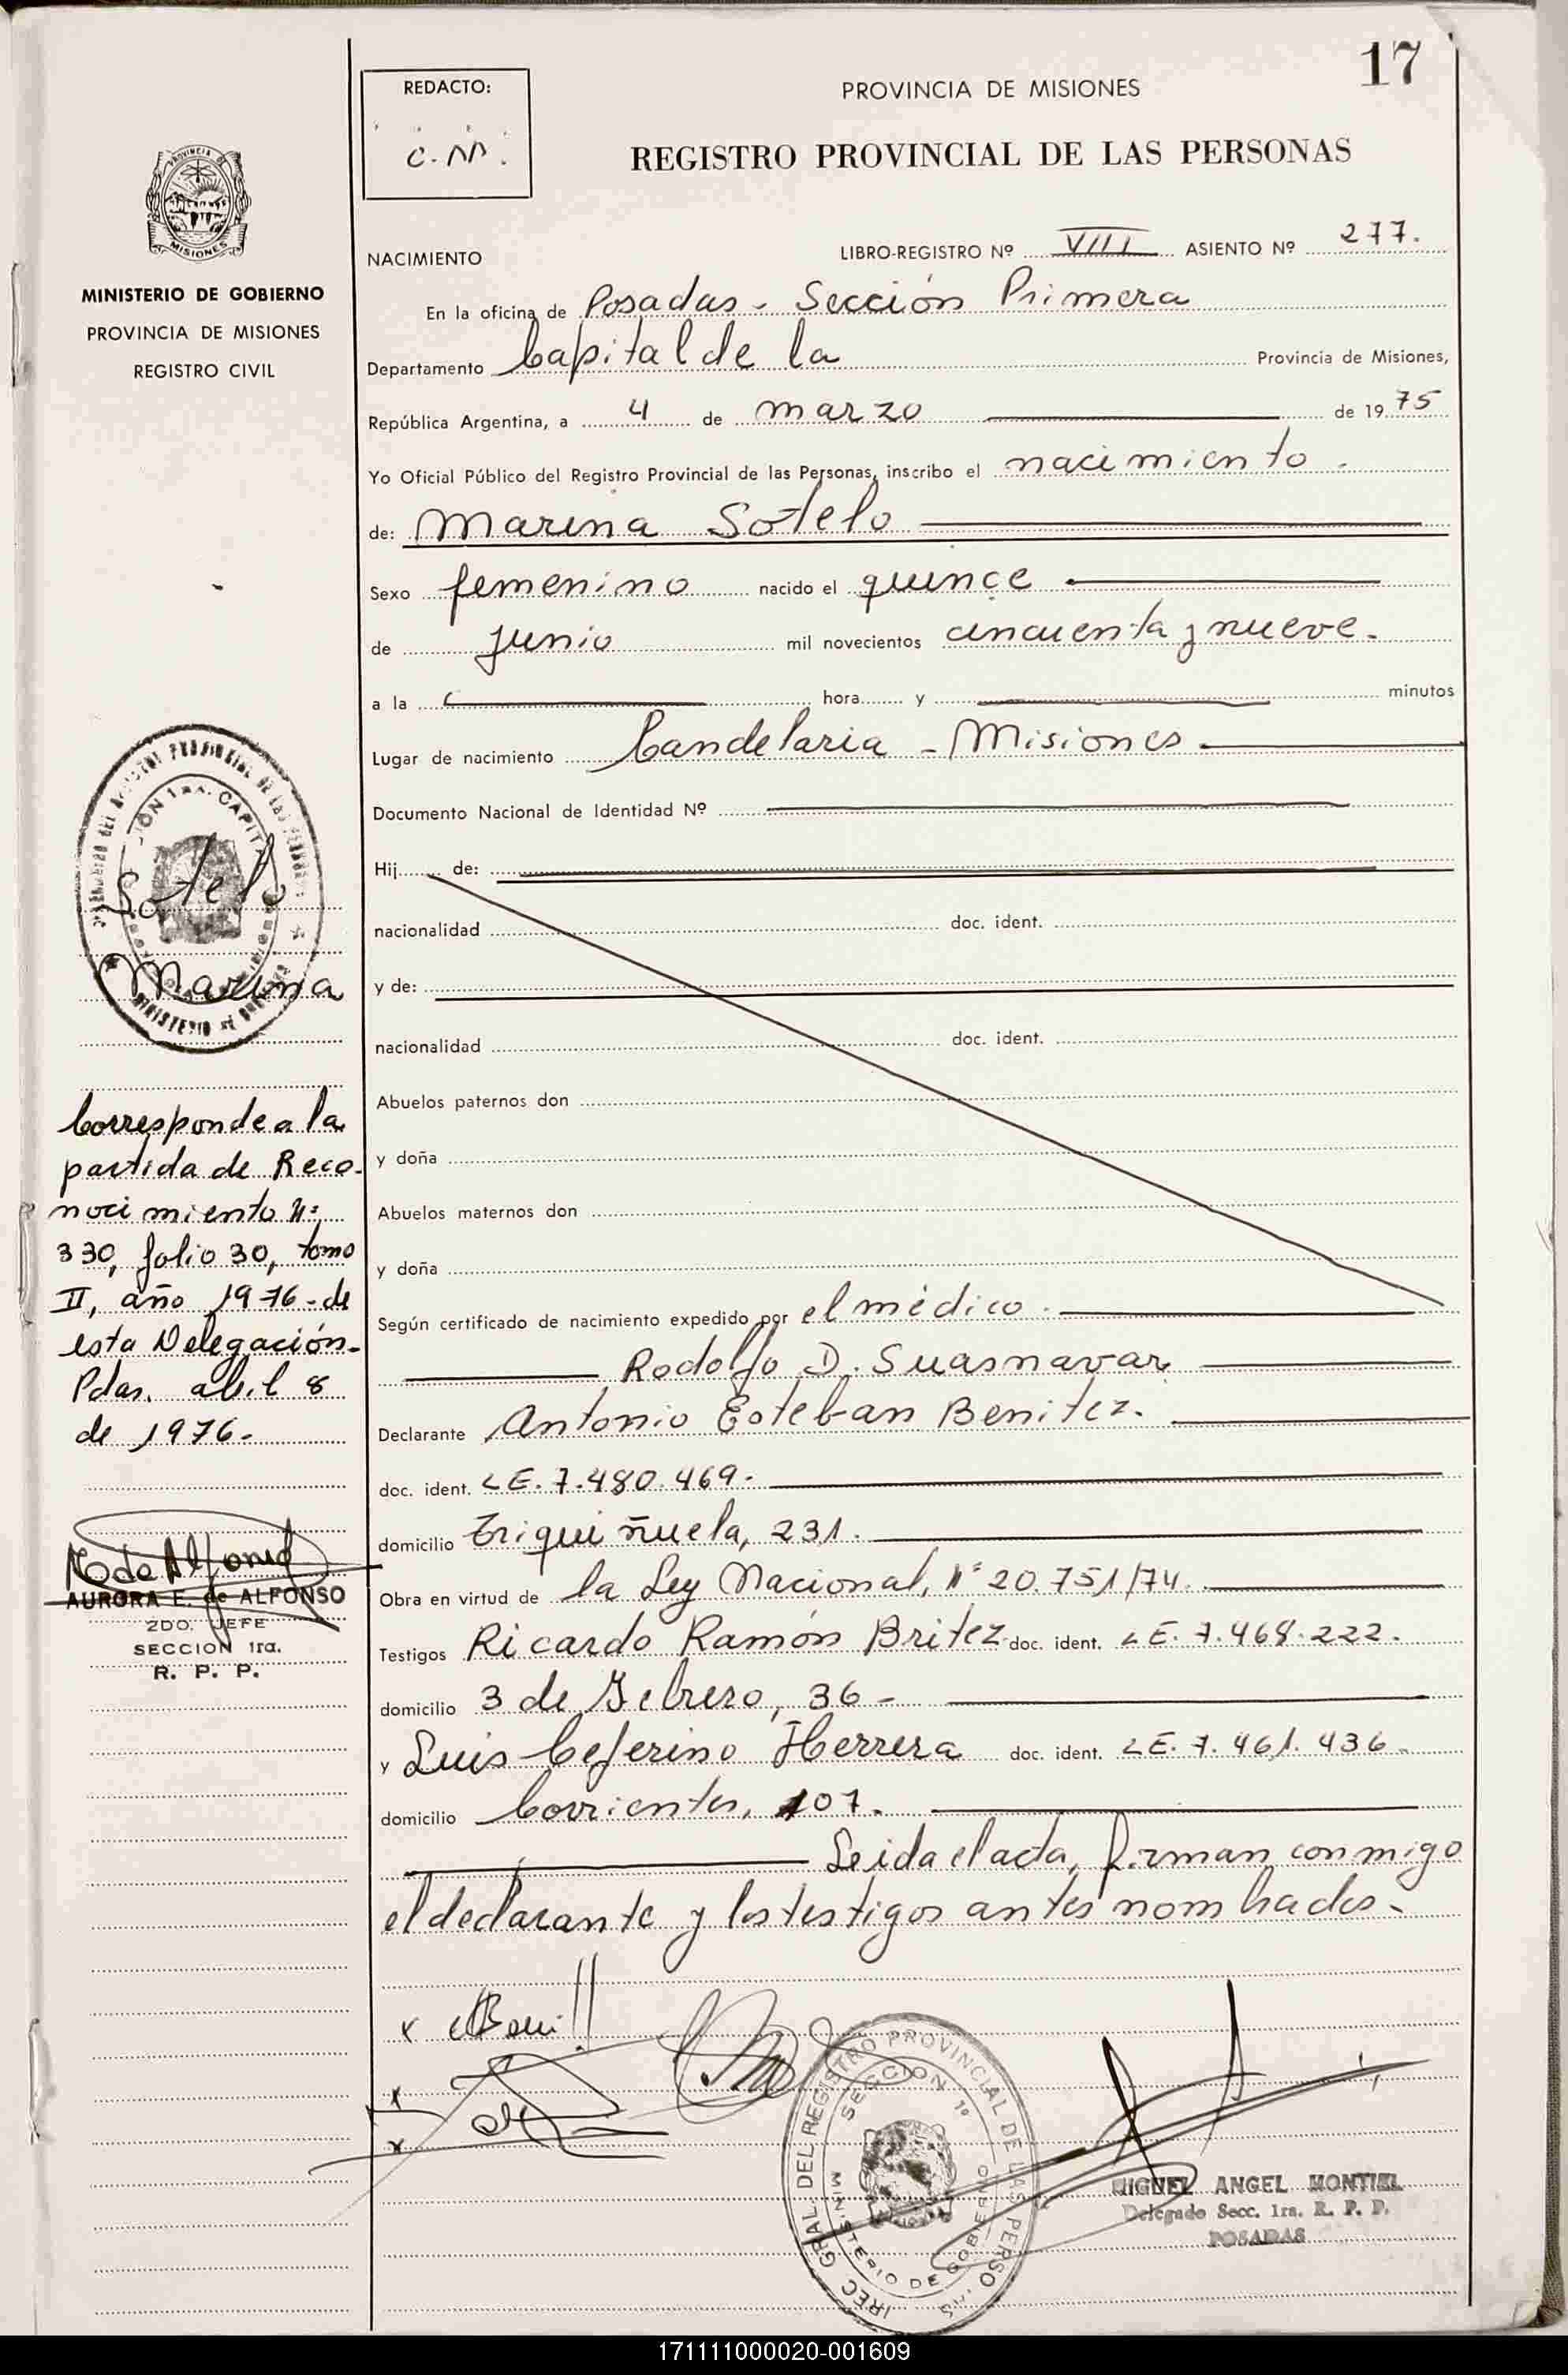 17
REDACTO:
C. M.
PROVINCIA DE MISIONES
REGISTRO PROVINCIAL DE LAS PERSONAS
PROVINCIA DE
MISIONES
MINISTERIO DE GOBIERNO
PROVINCIA DE MISIONES
REGISTRO CIVIL
NACIMIENTO LIBRO-REGISTRO Nº VIII ASIENTO Nº 277.
En la oficina de Posadas - Sección Primera
Departamento Capital de la Provincia de Misiones,
República Argentina, a 4 de marzo de 1975
Yo Oficial Público del Registro Provincial de las Personas, inscribo el nacimiento.
de: Marina Sotelo
Sexo femenino nacido el quince
de junio mil novecientos cincuenta y nueve.
a la hora y minutos
Lugar de nacimiento Candelaria - Misiones
Documento Nacional de Identidad Nº
Hij de:
nacionalidad doc. ident.
y de:
nacionalidad doc. ident.
Abuelos paternos don
y doña
Abuelos maternos don
y doña
Según certificado de nacimiento expedido por el médico.
Rodolfo D. Suasnavar
Declarante Antonio Esteban Benitez.
doc. ident. LE. 7.480.469.
domicilio Triquiñuela, 231.
Obra en virtud de la Ley Nacional, Nº 20.751/74.
Testigos Ricardo Ramón Britez doc. ident. LE. 7.468.222.
domicilio 3 de Febrero, 36-
y Luis Ceferino Herrera doc. ident. LE. 7.461.436.
domicilio Corrientes, 107.
Leida el acta, firman conmigo
el declarante y los testigos antes nombrados.
Sotelo
Marina
Corresponde a la
partida de Reco-
nocimiento Nº
330, folio 30, tomo
II, año 1976-de
esta Delegación-
Pdas. abril 8
de 1976.
AURORA E. de ALFONSO
2DO. JEFE
SECCION 1ra.
R. P. P.
GRAL. DEL REGISTRO PROVINCIAL DE LAS PERSO
SECCION 1º
MINISTERIO DE GOBIERNO
MIGUEL ANGEL MONTIEL
Delegado Secc. 1ra. R. P. P.
POSADAS
171111000020-001609